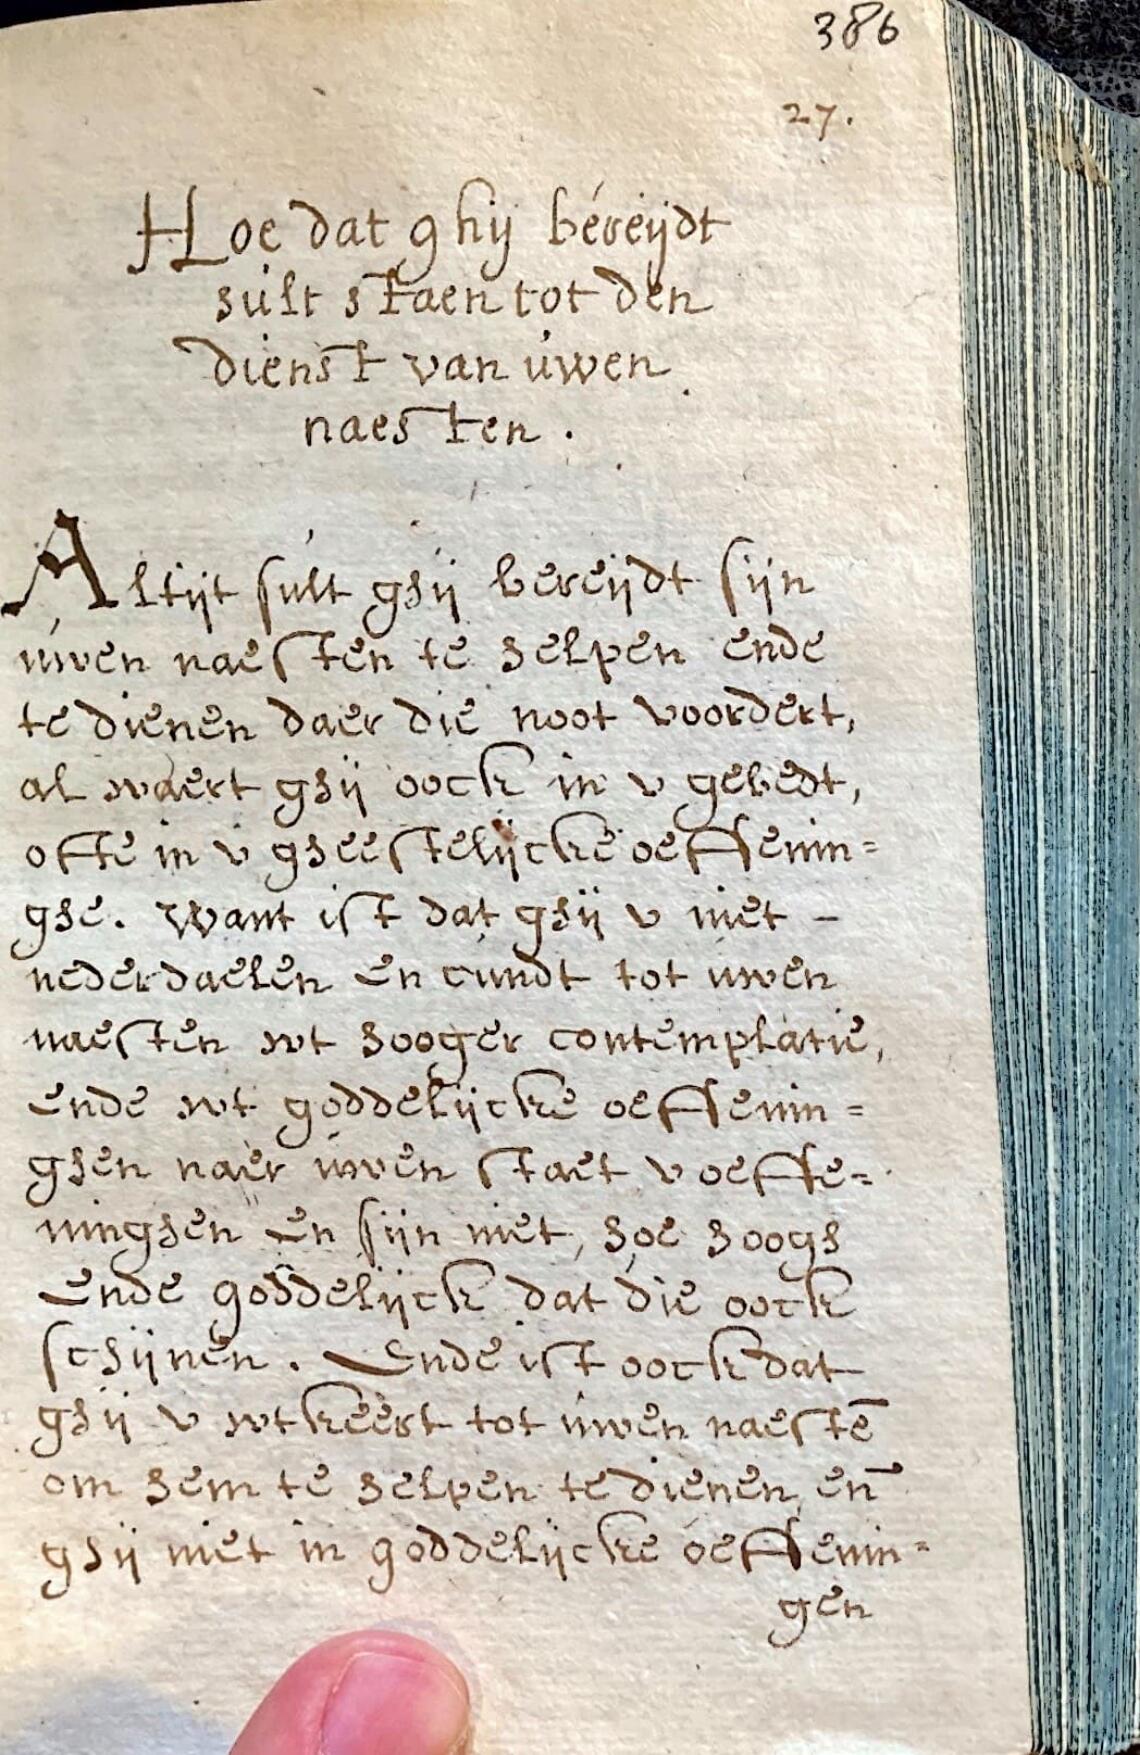 386
27.
Hoe dat ghij bereijdt
sult staen tot den
dienst van uwen
naesten.
Altijt sult ghij bereijdt sijn
uwen naesten te helpen ende
te dienen daer die noot voordert,
al waert ghij oock in v gebedt,
ofte in v gheestelijcke oeffenin=
ghe. Want ist dat ghij v niet –
nederdaelen en cundt tot uwen
naesten wt hooger contemplatie,
ende wt goddelijcke oeffenin=
ghen naer uwen staet v oeffe=
ninghen en sijn niet, hoe hoogh
ende goddelijck dat die oock
schijnen. Ende ist oock dat
ghij v wtkeert tot uwen naestē
om hem te helpen te dienen, en̄
ghij niet in goddelijcke oeffenin=
gen